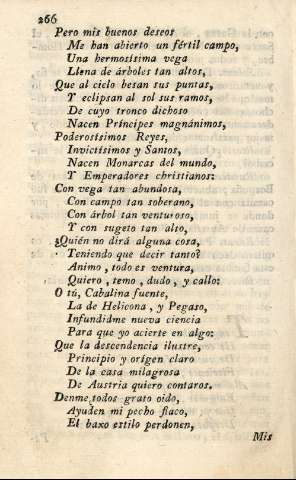 266
Pero mis buenos deseos
Me han abierto un fértil campo,
Una hermosísima vega
Llena de árboles tan altos,
Que al cielo besan sus puntas,
Y eclipsan al sol sus ramos,
De cuyo tronco dichoso
Nacen Príncipes magnánimos,
Poderosísimos Reyes,
Invictísimos y Santos,
Nacen Monarcas del mundo,
Y Emperadores christianos:
Con vega tan abundosa,
Con campo tan soberano,
Con árbol tan venturoso,
Y con sugeto tan alto,
¿Quién no dirá alguna cosa,
Teniendo que decir tanto?
Animo, todo es ventura,
Quiero, temo, dudo, y callo:
O tú, Cabalina fuente,
La de Helicona, y Pegaso,
Infundidme nueva ciencia
Para que yo acierte en algo:
Que la descendencia ilustre,
Principio y orígen claro
De la casa milagrosa
De Austria quiero contaros.
Denme todos grato oido,
Ayuden mi pecho flaco,
El baxo estilo perdonen,
Mis